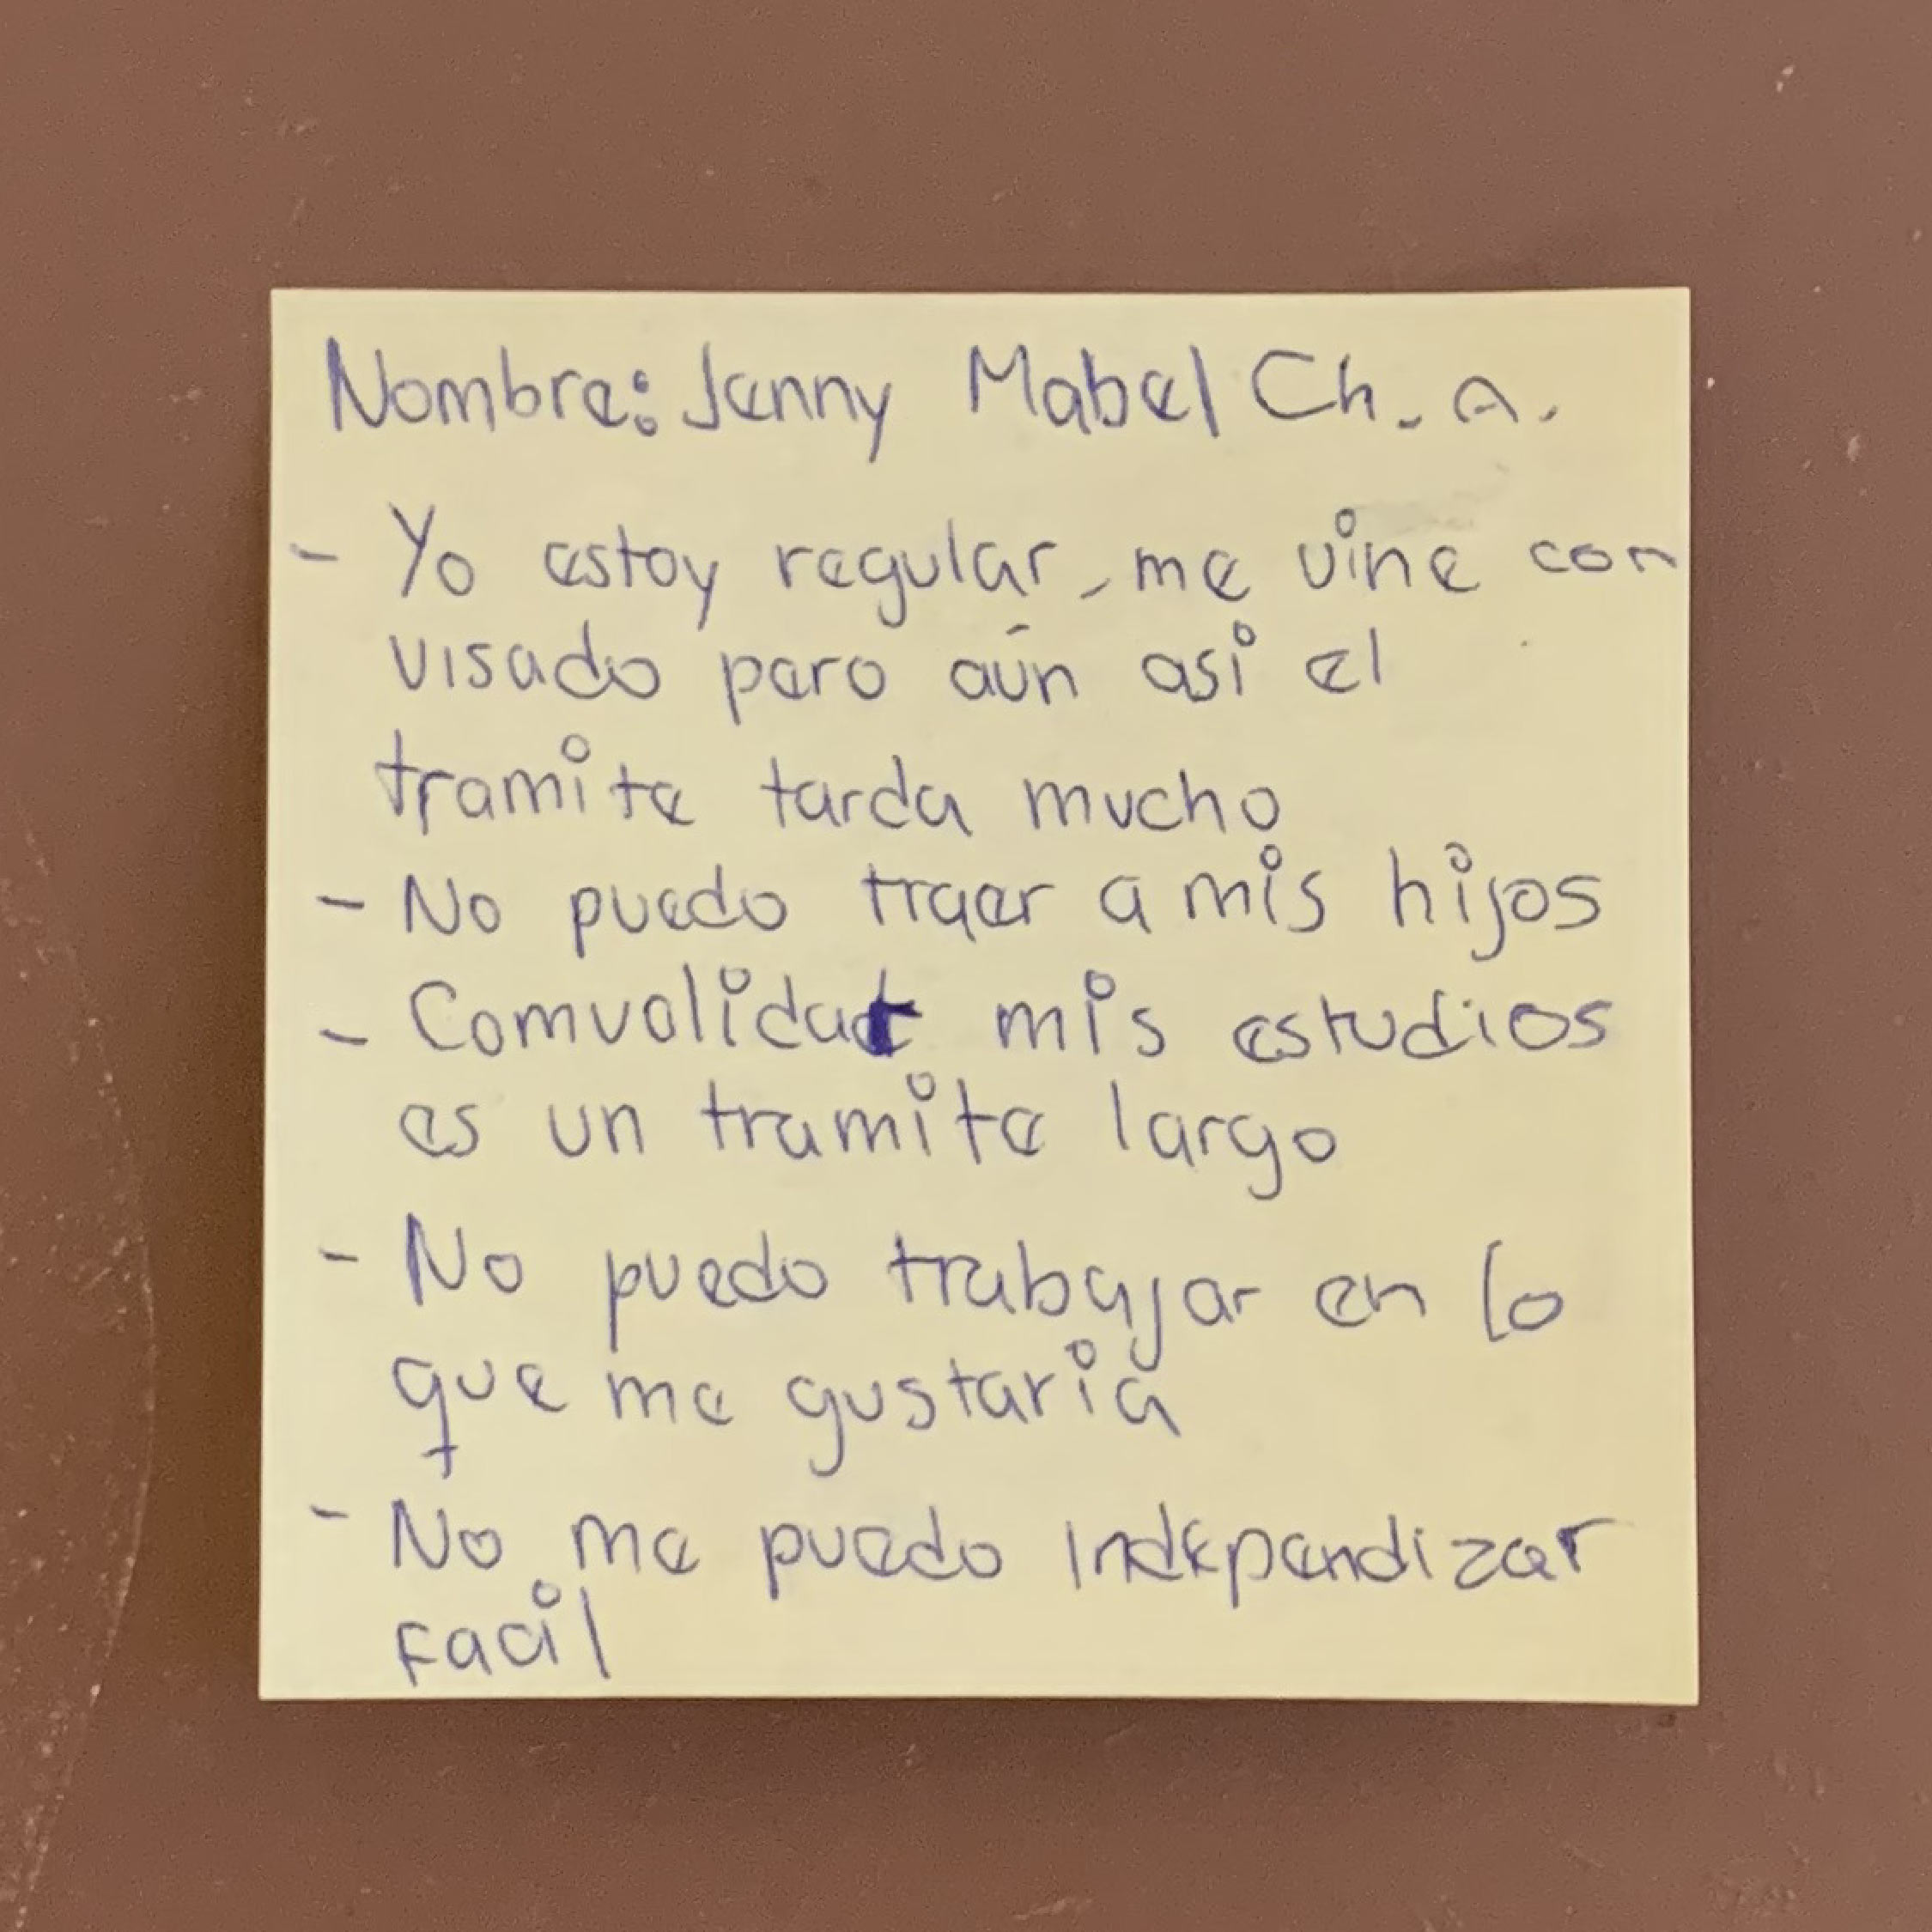 Nombre: Jenny Mabel Ch. A.
- Yo estoy regular, me vine con
visado pero aún asi el
tramite tarda mucho
- No puedo traer a mis hijos
- Comvalidar mis estudios
es un tramite largo
- No puedo trabajar en lo
que me gustaria
- No me puedo independizar
facil